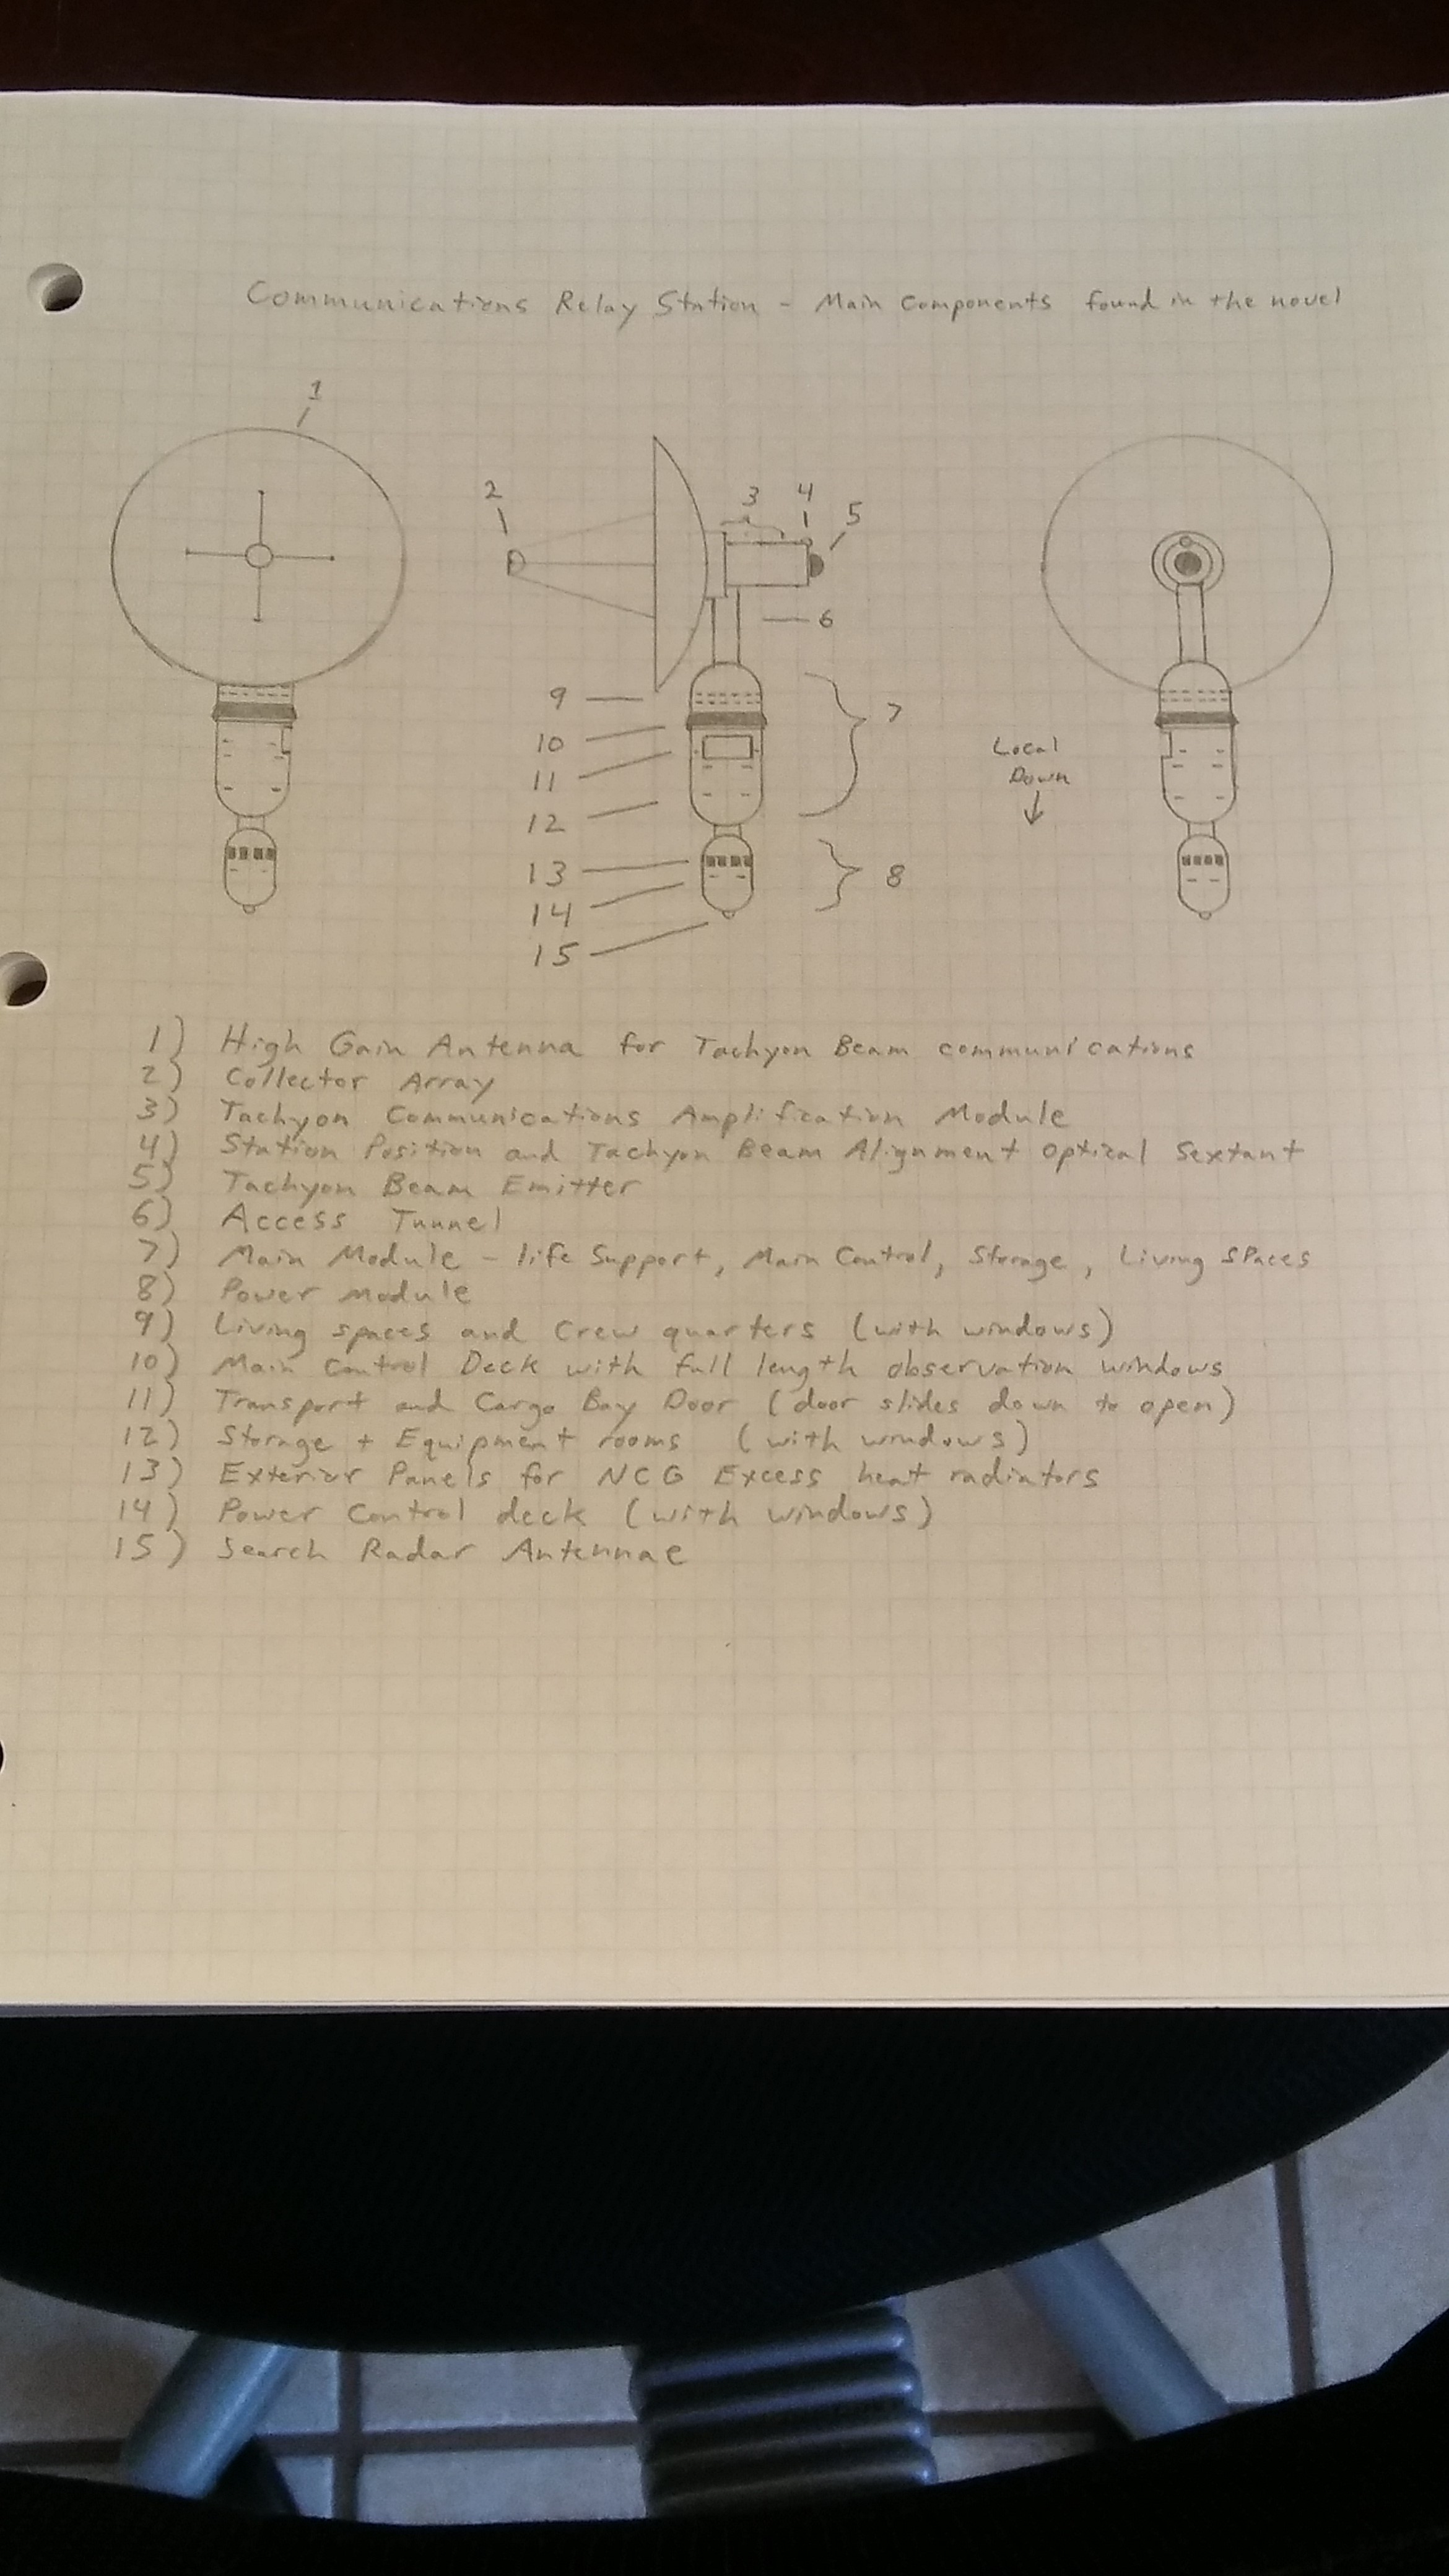 Communications Relay Station - Main Components found in the novel
1
2
3
4
5
6
9
7
10
11
Local
Down
12
13
8
14
15
1) High Gain Antenna for Tachyon Beam communications
2) Collector Array
3) Tachyon Communications Amplification Module
4) Station Position and Tachyon Beam Alignment optical Sextant
5) Tachyon Beam Emitter
6) Access Tunnel
7) Main Module - life Support, Main Control, Storage, Living SPaces
8) Power Module
9) Living spaces and Crew quarters (with windows)
10) Main Control Deck with full length observation windows
11) Transport and Cargo Bay Door (door slides down to open)
12) Storage + Equipment rooms (with windows)
13) Exterior Panels for NCG Excess heat radiators
14) Power Control deck (with windows)
15) Search Radar Antennae